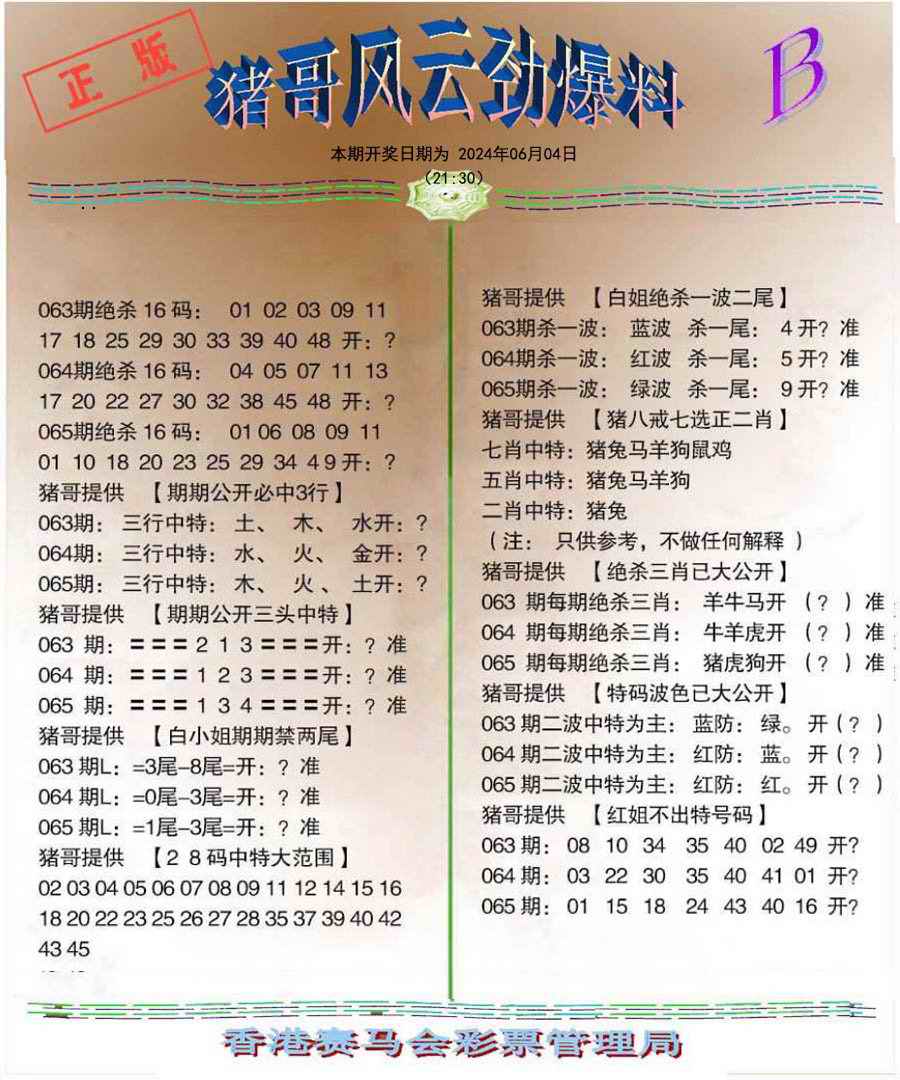 正版
猪哥风云劲爆料
B
本期开奖日期为 2024年06月04日
(21:30)
063期绝杀 16 码： 01 02 03 09 11
17 18 25 29 30 33 39 40 48 开：?
064期绝杀 16 码： 04 05 07 11 13
17 20 22 27 30 32 38 45 48 开：?
065期绝杀 16 码： 01 06 08 09 11
01 10 18 20 23 25 29 34 4 9 开：?
猪哥提供 【期期公开必中3行】
063期： 三行中特： 土、 木、 水开：?
064期： 三行中特： 水、 火、 金开：?
065期： 三行中特： 木、 火 、 土开：?
猪哥提供 【期期公开三头中特】
063 期：＝＝＝2 1 3＝＝＝开：? 准
064 期：＝＝＝1 2 3＝＝＝开：? 准
065 期：＝＝＝1 3 4＝＝＝开：? 准
猪哥提供 【白小姐期期禁两尾】
063 期L：=3尾–8尾=开：? 准
064 期L：=0尾–3尾=开：? 准
065 期L：=1尾–3尾=开：? 准
猪哥提供 【2 8 码中特大范围】
02 03 04 05 06 07 08 09 11 12 14 15 16
18 20 22 23 25 26 27 28 35 37 39 40 42
43 45
猪哥提供 【白姐绝杀一波二尾】
063期杀一波： 蓝波 杀一尾： 4 开? 准
064期杀一波： 红波 杀一尾： 5 开? 准
065期杀一波： 绿波 杀一尾： 9 开? 准
猪哥提供 【猪八戒七选正二肖】
七肖中特：猪兔马羊狗鼠鸡
五肖中特：猪兔马羊狗
二肖中特：猪兔
（注： 只供参考，不做任何解释 ）
猪哥提供 【绝杀三肖已大公开】
063 期每期绝杀三肖： 羊牛马开 （? ）准
064 期每期绝杀三肖： 牛羊虎开 （? ）准
065 期每期绝杀三肖： 猪虎狗开 （? ）准
猪哥提供 【特码波色已大公开】
063 期二波中特为主： 蓝防： 绿。 开（? ）
064 期二波中特为主： 红防： 蓝。 开（? ）
065 期二波中特为主： 红防： 红。 开（? ）
猪哥提供 【红姐不出特号码】
063 期： 08 10 34 35 40 02 49 开?
064 期： 03 22 30 35 40 41 01 开?
065 期： 01 15 18 24 43 40 16 开?
香港赛马会彩票管理局